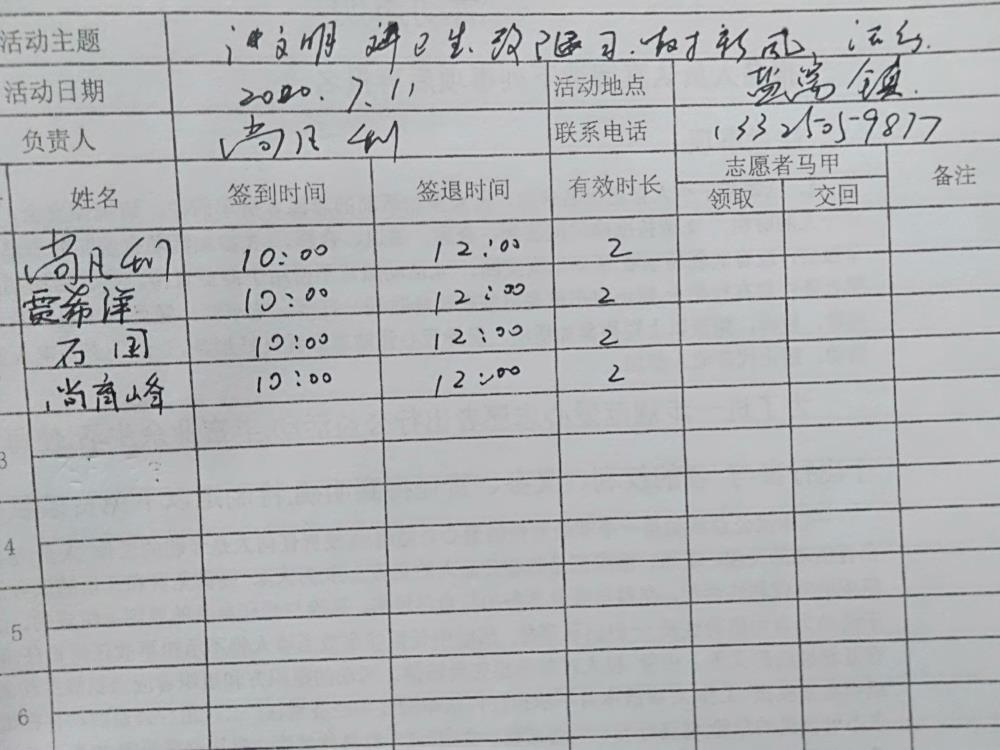 活动主题 讲文明 讲卫生 改陋习 树新风 活动
活动日期 2020.7.11 活动地点 盐窝镇
负责人 尚月利 联系电话 13325059817
姓名 签到时间 签退时间 有效时长 志愿者马甲 备注
领取 交回
尚月利 10:00 12:00 2
贾希泽 10:00 12:00 2
石国 10:00 12:00 2
尚峰 10:00 12:00 2
3
4
5
6